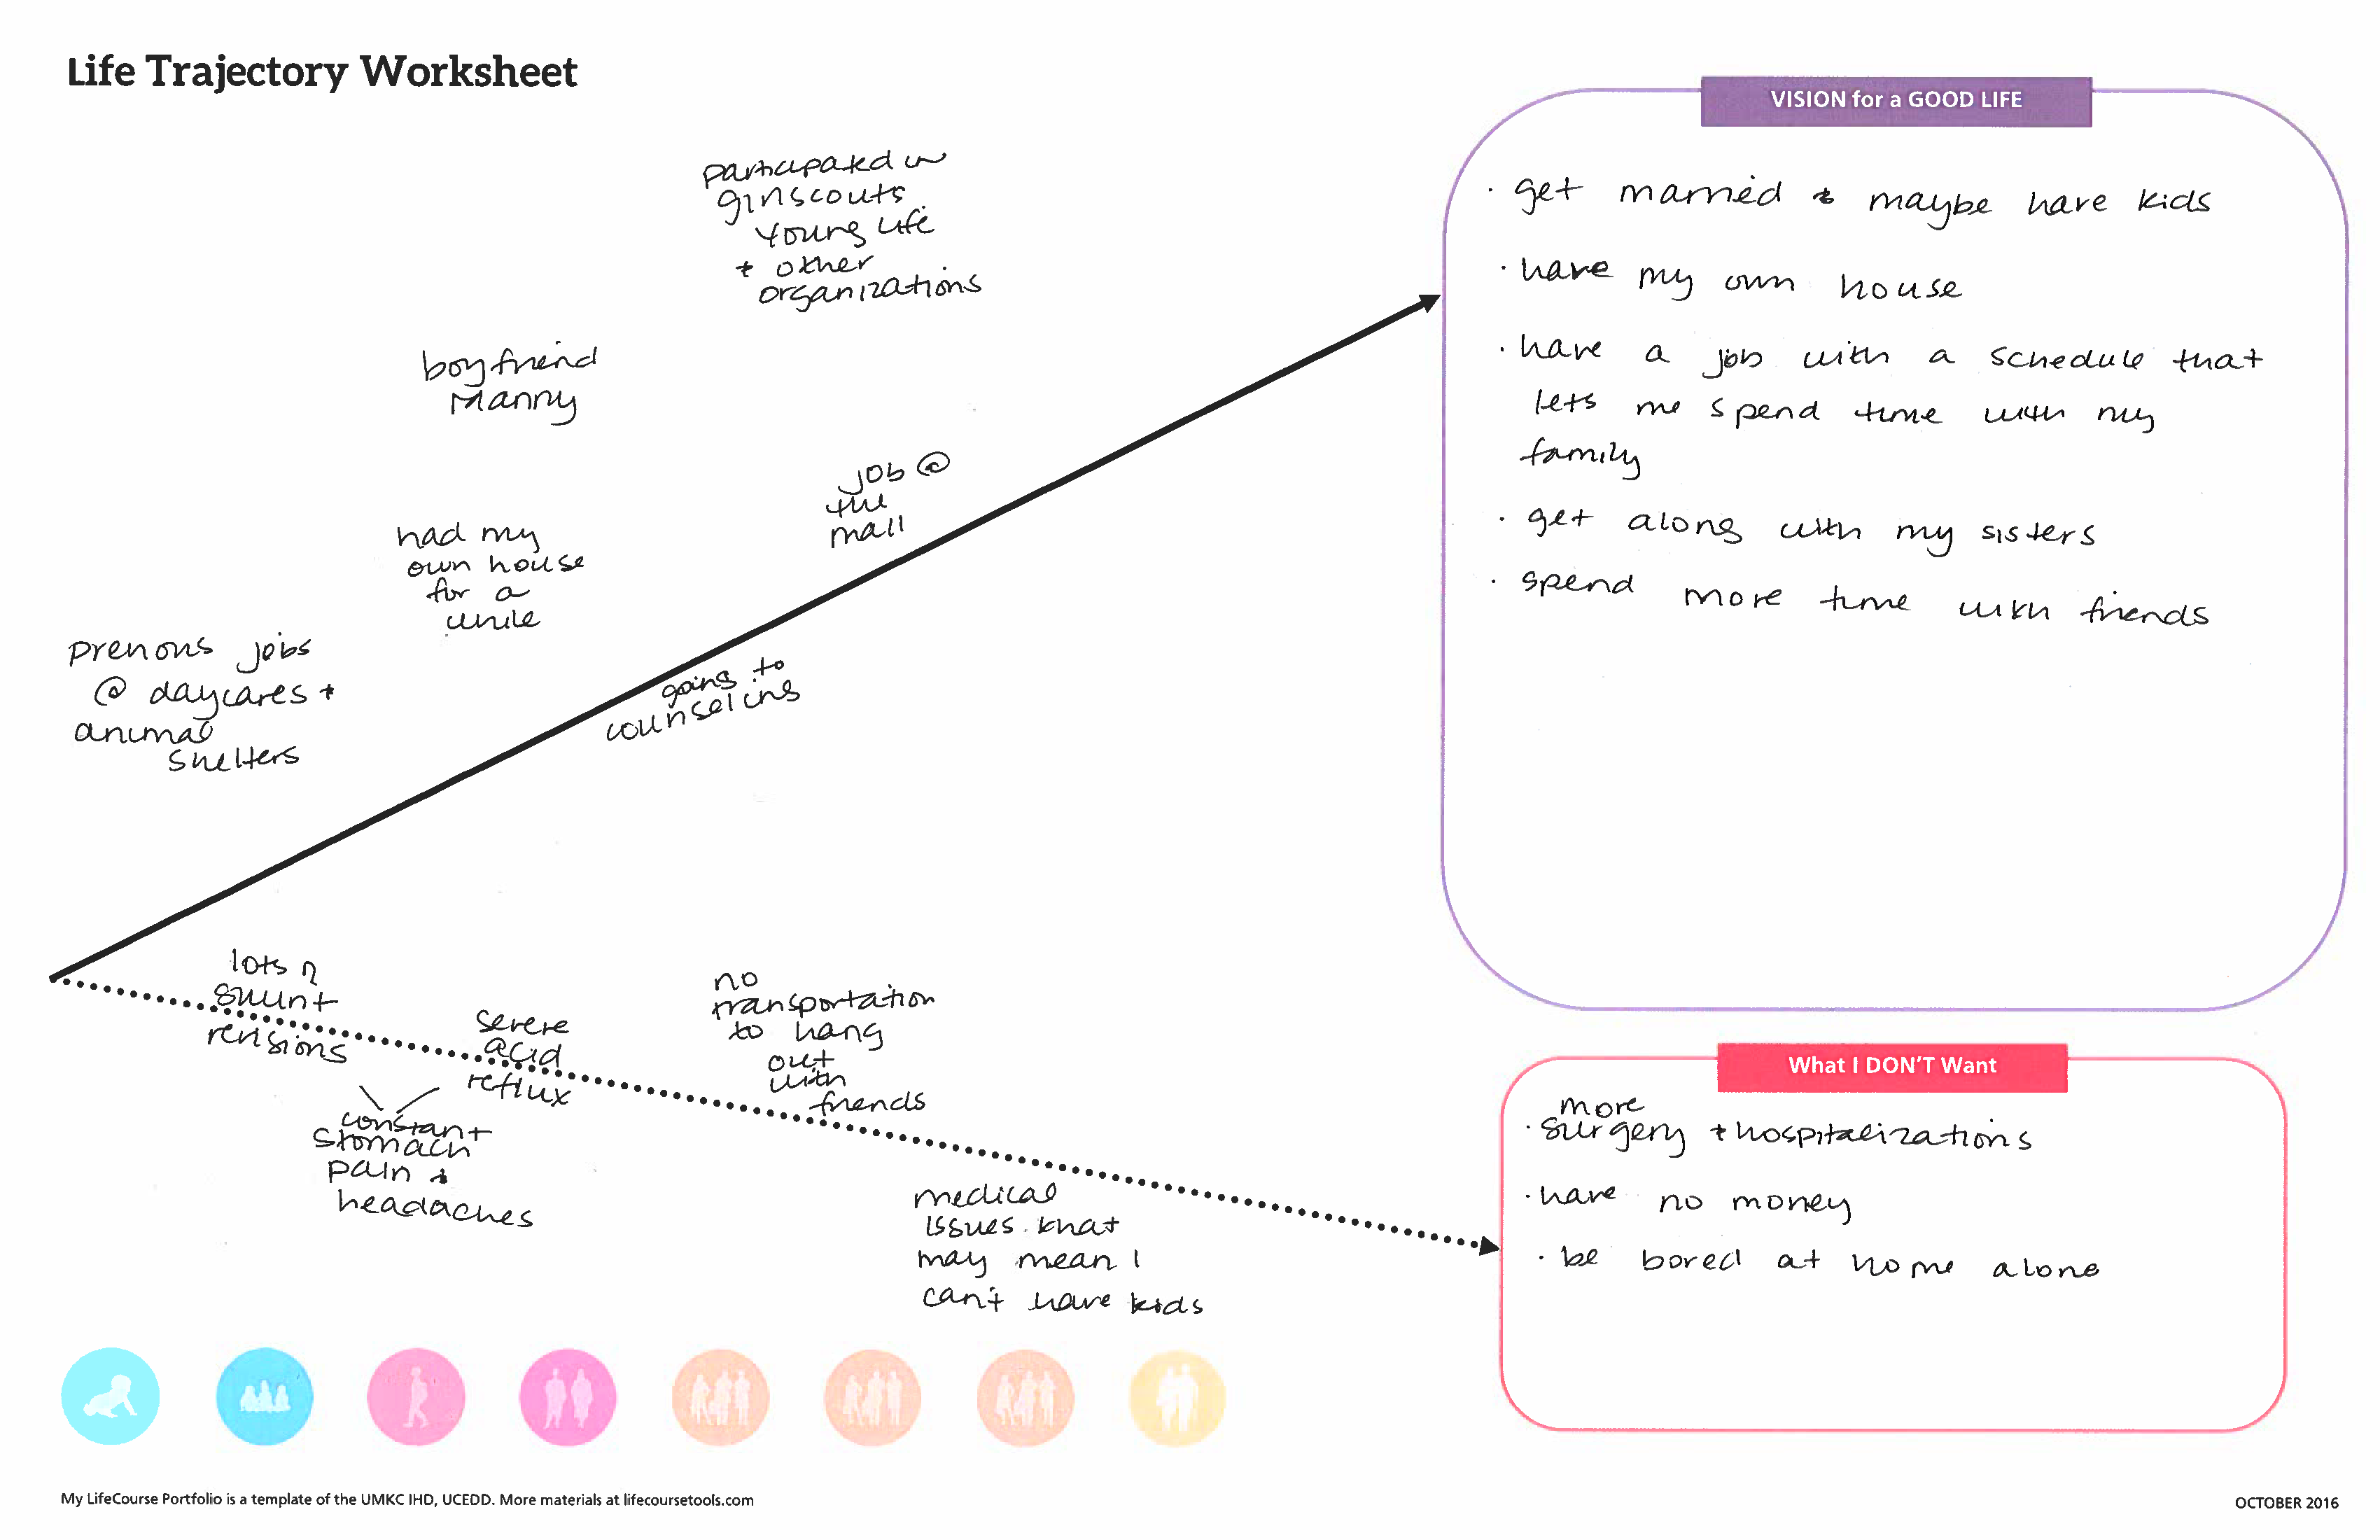 Life Trajectory Worksheet
VISION for a GOOD LIFE
participated in
girlscouts
Young Life
+ other
organizations
boyfriend
Manny
job @
the
mall
had my
own house
for a
while
previous jobs
@ daycares +
animal
shelters
going to
counseling
· get married & maybe have kids
· have my own house
· have a job with a schedule that
lets me spend time with my
family
· get along with my sisters
· spend more time with friends
lots of
shunt
revisions
severe
acid
reflux
constant
stomach
pain &
headaches
no
transportation
to hang
out
with
friends
medical
issues that
may mean I
can't have kids
What I DON'T Want
more
· surgery + hospitalizations
· have no money
· be bored at home alone
My LifeCourse Portfolio is a template of the UMKC IHD, UCEDD. More materials at lifecoursetools.com
OCTOBER 2016